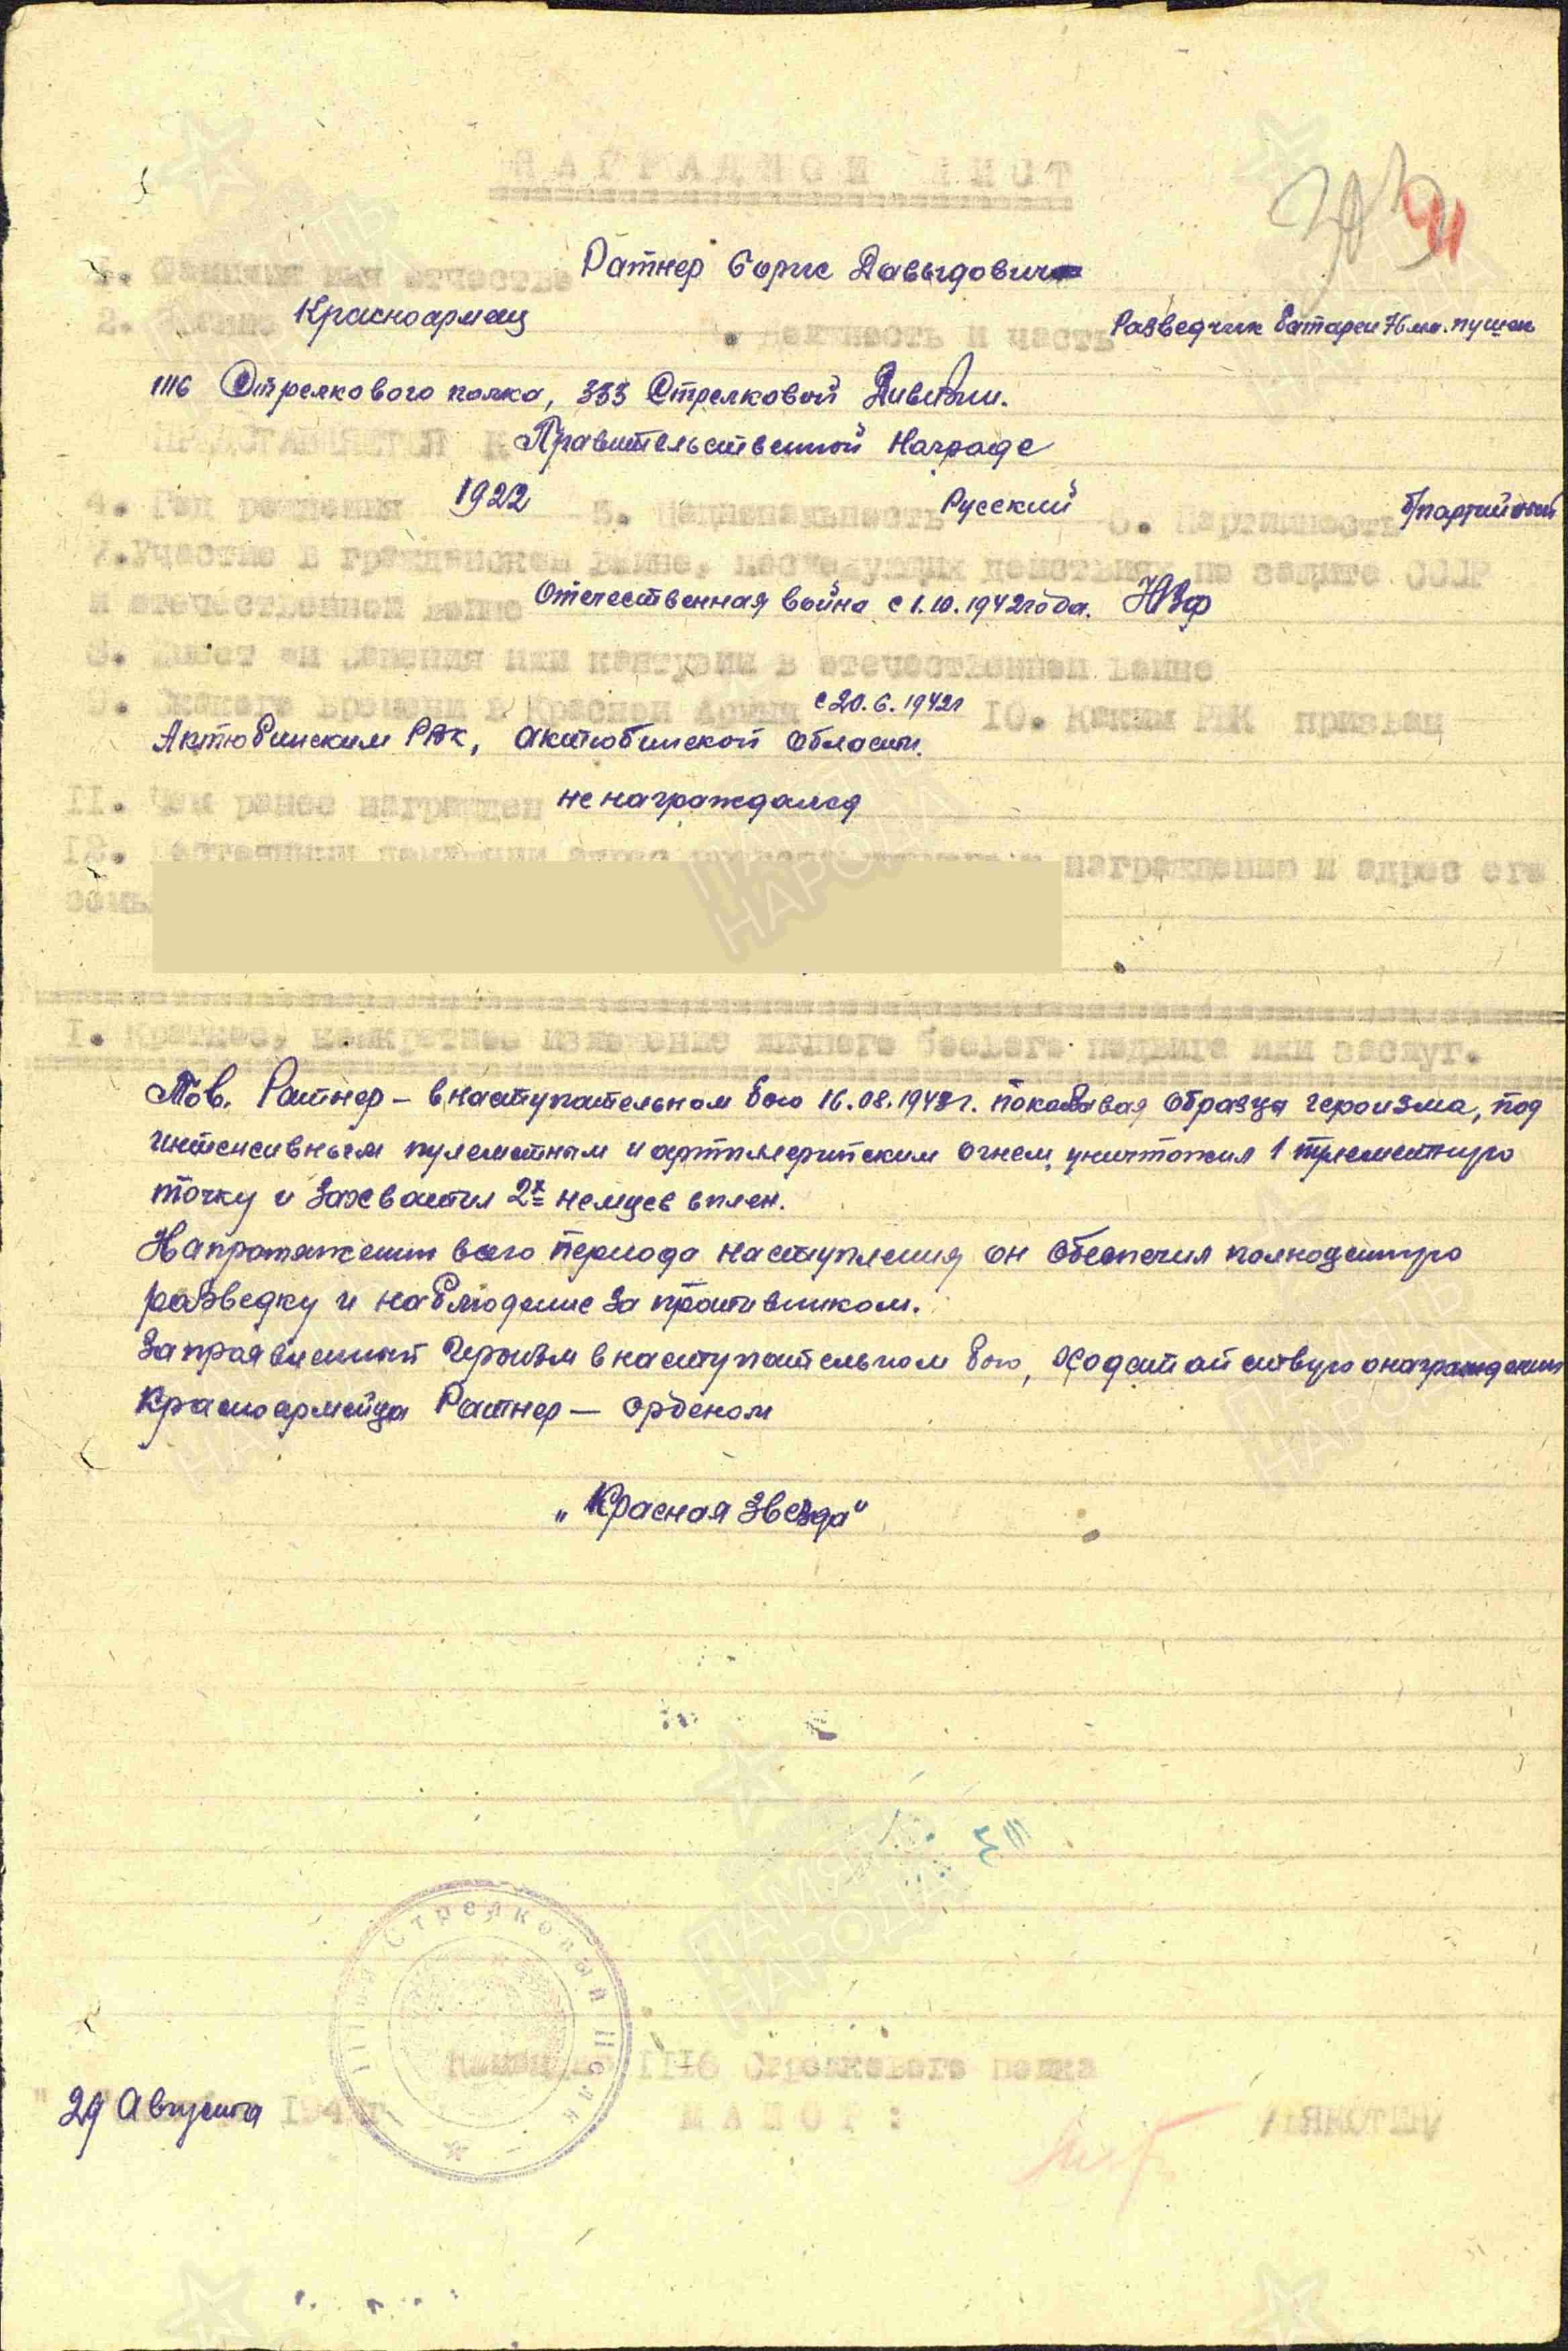 НАГРАДНОЙ ЛИСТ
1. Фамилия имя отчество Ратнер Борис Давыдович
2. Звание Красноармеец 3. Должность и часть Разведчик батареи 76 мм. пушек
1116 Стрелкового полка, 333 Стрелковой Дивизии.
ПРЕДСТАВЛЯЕТСЯ К Правительственной Награде
4. Год рождения 1922 5. Национальность Русский 6. Партийность б/партийный
7. Участие в гражданской войне, последующих действиях по защите СССР
и отечественной войне Отечественная война с 1.10.1942 года. ЮЗФ
8. Имеет ли ранения или контузии в отечественной войне
9. Скакого времени в Красной Армии с 20.6.1942г 10. Каким РВК призван
Актюбинским РВК, Актюбинской области.
11. Чем ранее награжден не награждался
12. Постоянный домашний адрес награждению и адрес его
I. Краткое, конкретное изложение личного боевого подвига или заслуг.
Тов. Ратнер – в наступательном бою 16.08.1943г. показавая образца героизма, под
интенсивным пулеметным и артиллерийским огнем, уничтожил 1 пулеметную
точку и захватил 2х немцев в плен.
На протяжении всего периода наступления он обеспечил полноценную
разведку и наблюдение за противником.
За проявленный героизм в наступательном бою, ходатайствую о награждении
Красноармейца Ратнер – орденом
„Красная Звезда"
1116 Стрелковый Полк
Командир 1116 Стрелкового полка
29 Августа 194 г. МАЙОР: